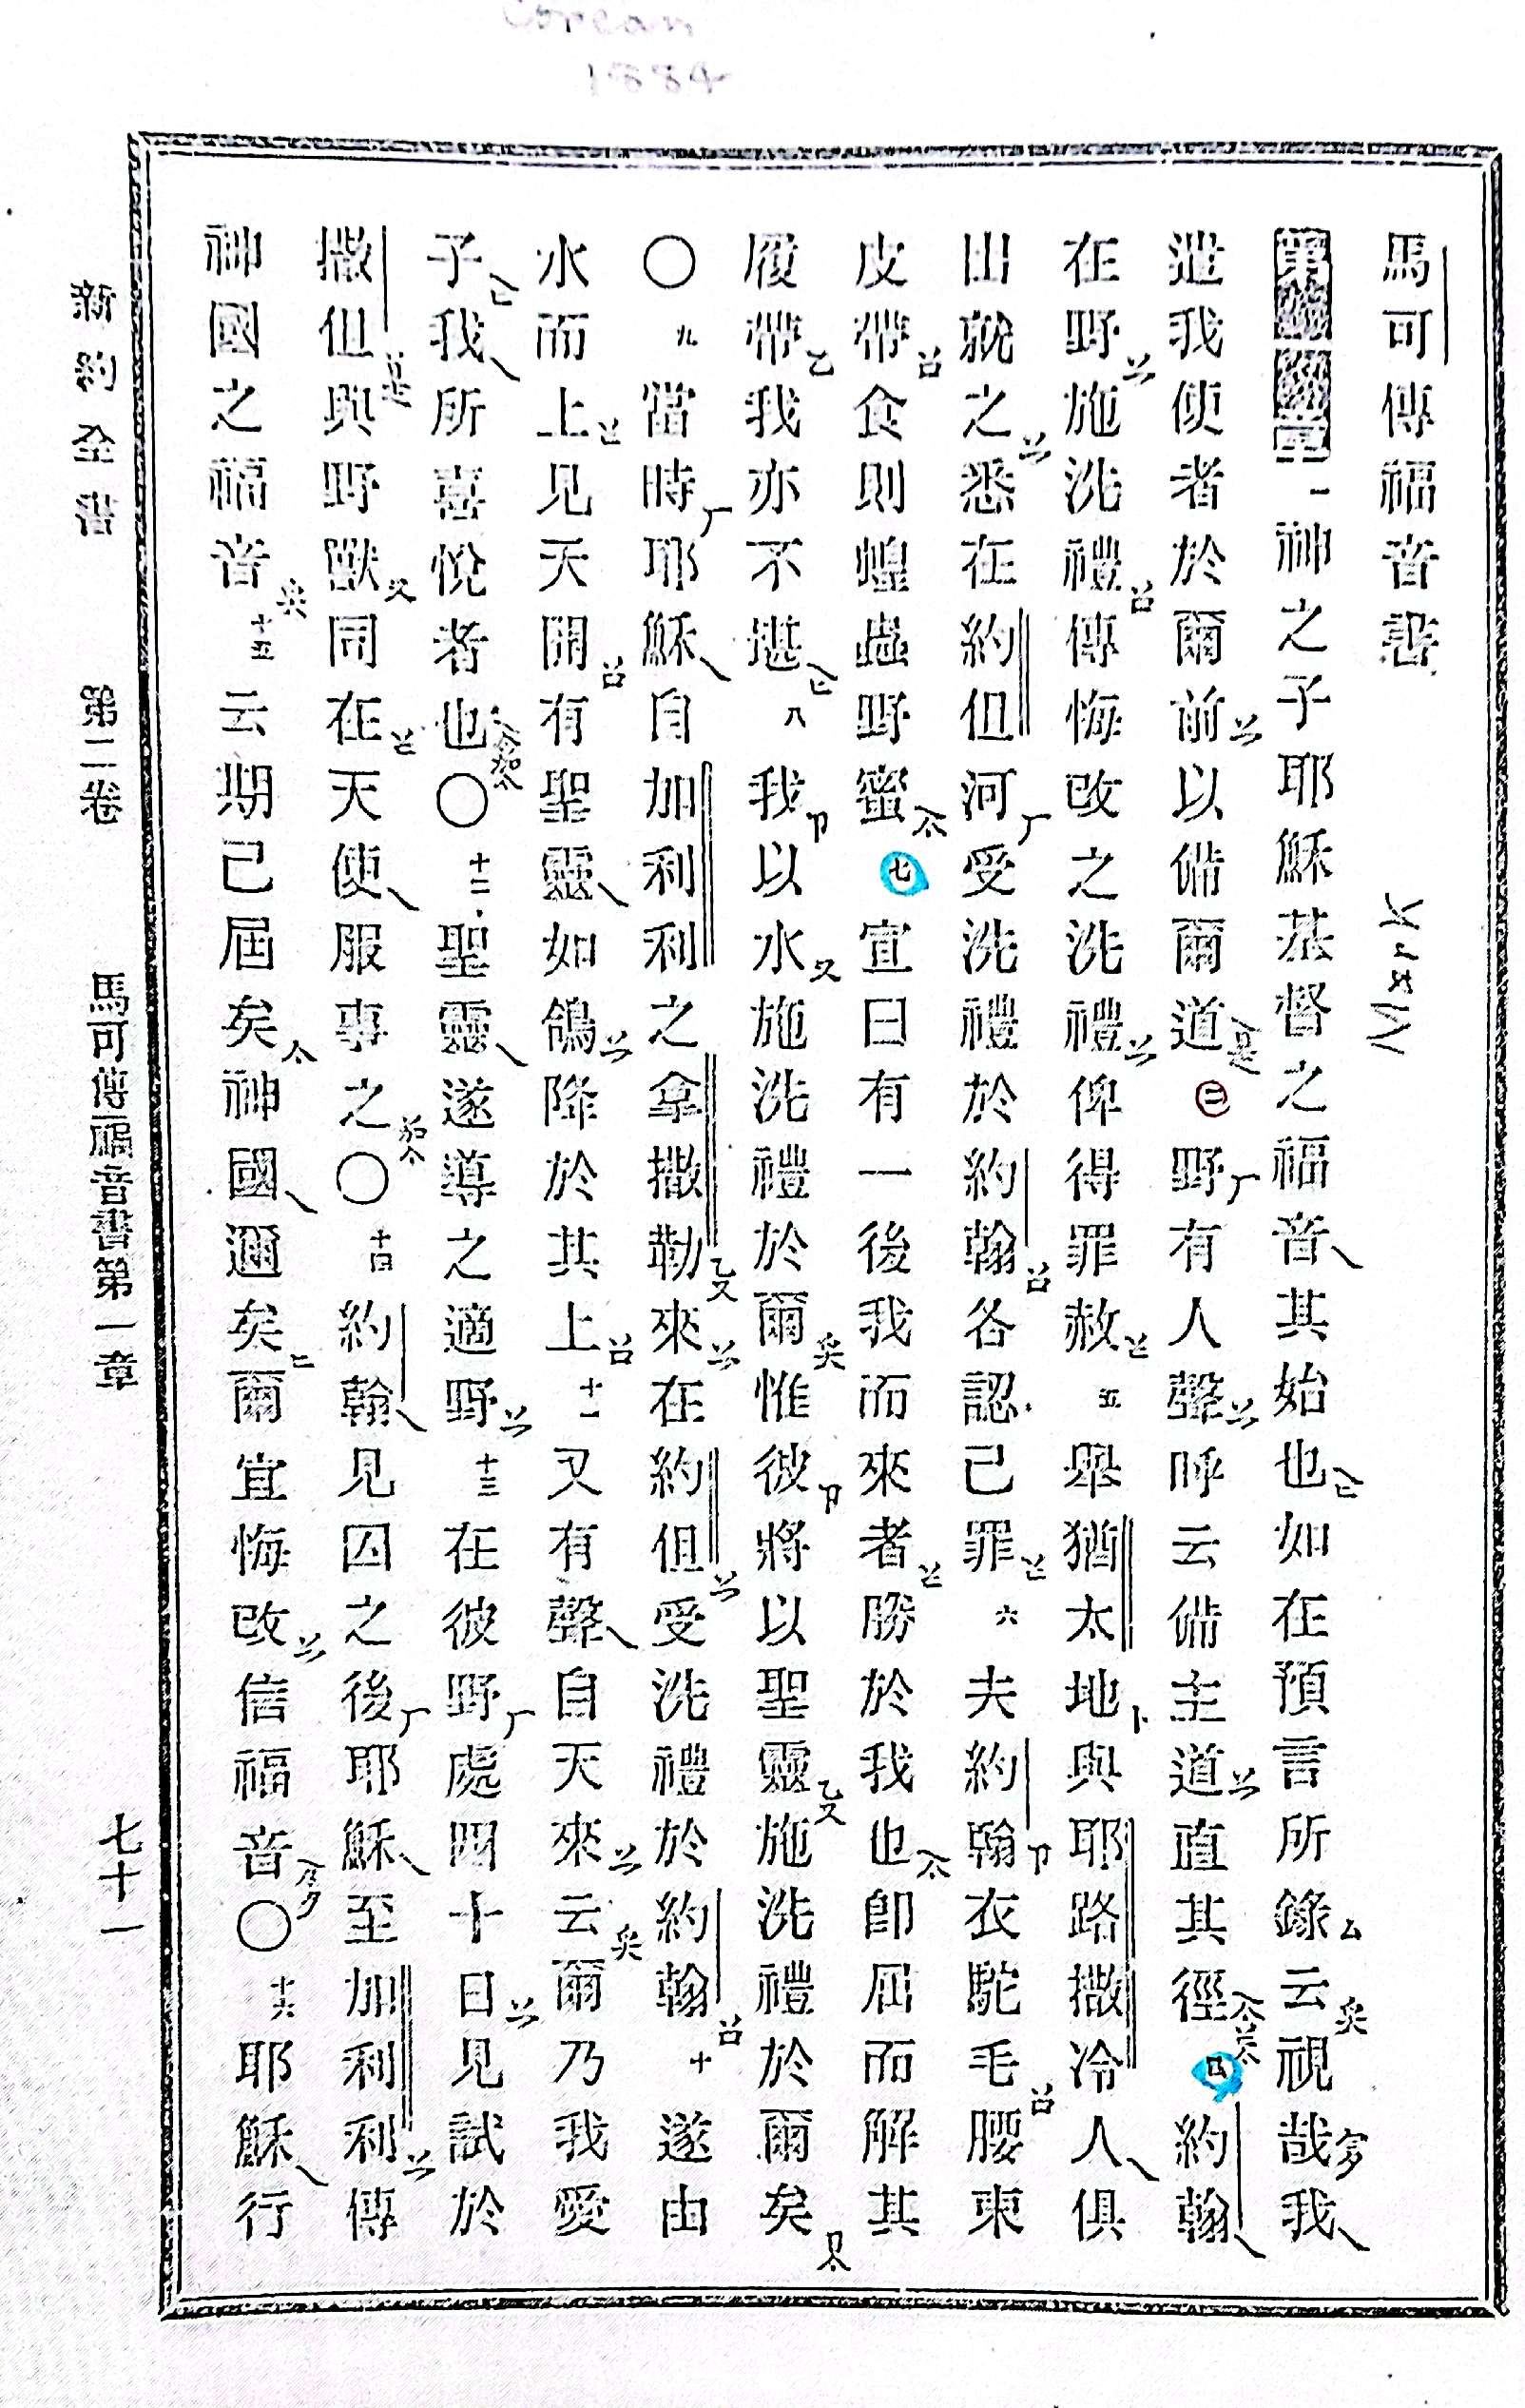 Corean
1884
馬可傳福音書
第一章 一神之子耶穌基督之福音乀其始也𠆢㔾如在預言所錄厶云矣視哉我乀
遣我使者於爾前以備爾道三野厂有人聲呼云備主道直其徑四約翰乀
在野施洗禮傳悔改之洗禮俾得罪赦五舉猶太地卜與耶路撒冷人乀俱
出就之悉在約但河厂受洗禮於約翰各認己罪六夫約翰卩衣駝毛腰束
皮帶食則蝗蟲野蜜七宣曰有一後我而來者勝於我也卽屈而解其
履帶乙我亦不堪八我卩以水又施洗禮於爾矣惟彼卩將以聖靈乙又施洗禮於爾矣
〇九當時厂耶穌乀自加利利之拿撒勒乙又來在約但受洗禮於約翰十遂由
水而上見天開有聖靈乀如鴿降於其上十一又有聲乀自天來云矣爾乃我愛
子我乀所喜悅者也〇十二聖靈乀遂導之適野十三在彼野厂處四十日見試於
撒但與野獸又同在天使乀服事之〇十四約翰乀見囚之後厂耶穌乀至加利利傳
神國之福音矣十五云期已屆矣神國乀邇矣爾宜悔改信福音〇十六耶穌乀行
新約全書 第二卷 馬可傳福音書第一章 七十一